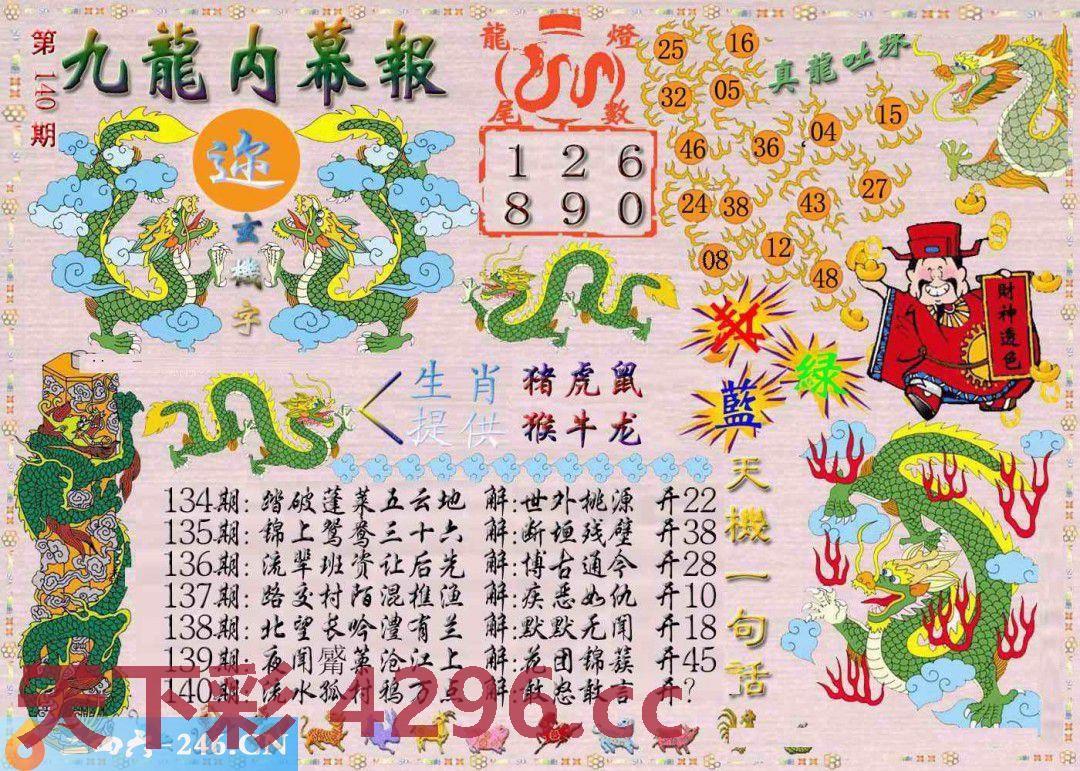 第140期
九龍内幕報
迩
玄機字
龍燈
尾數
1 2 6
8 9 0
真龍吐珠
25 16
32 05
15
04
46 36
27
24 38 43
12
08 48
財神透色
红
绿
藍
生肖 猪虎鼠
提供 猴牛龙
天機一句話
134期:踏破蓬莱五云地 解:世外桃源 开22
135期:锦上鸳鸯三十六 解:断垣残壁 开38
136期:流辈班资让后先 解:博古通今 开28
137期:路交村陌混樵渔 解:疾恶如仇 开10
138期:北望长吟澧有兰 解:默默无闻 开18
139期:夜闻觱篥沧江上 解:花团锦簇 开45
140期:流水孤村鸦万点 解:敢怒敢言 开?
天下彩 4296.cc
=246.CN